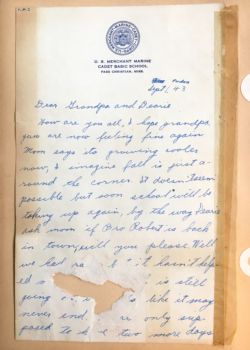 U. S. MERCHANT MARINE
CADET BASIC SCHOOL
PASS CHRISTIAN, MISS.
Sept 1, 43
Dear Grandpa and Dearie
How are you all, I hope grandpa
you are now feeling fine again
Mom says its growing cooler
now, I imagine fall is just a-
round the corner. It doesn't seem
possible but soon school will be
taking up again, by the way Dearie
ask mom if Bro Robert is back
in town, will you please. Well
we had hasn't help
ed is still
going like it may
never end. only sup-
posed to two more days